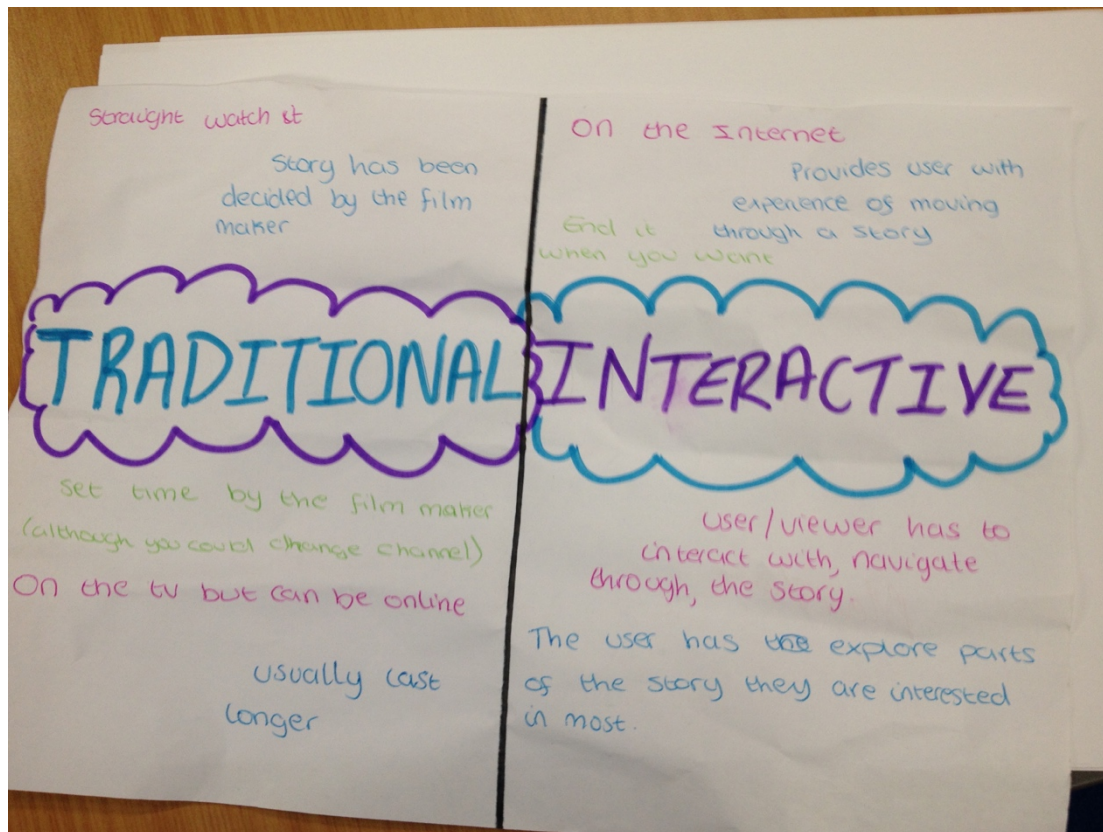 Straight watch it
Story has been
decided by the film
maker
TRADITIONAL
set time by the film maker
(although you could change channel)
On the tv but can be online
usually last
longer
On the Internet
Provides user with
experience of moving
through a story
End it
when you want
INTERACTIVE
user/viewer has to
interact with, navigate
through, the story.
The user has the explore parts
of the story they are interested
in most.